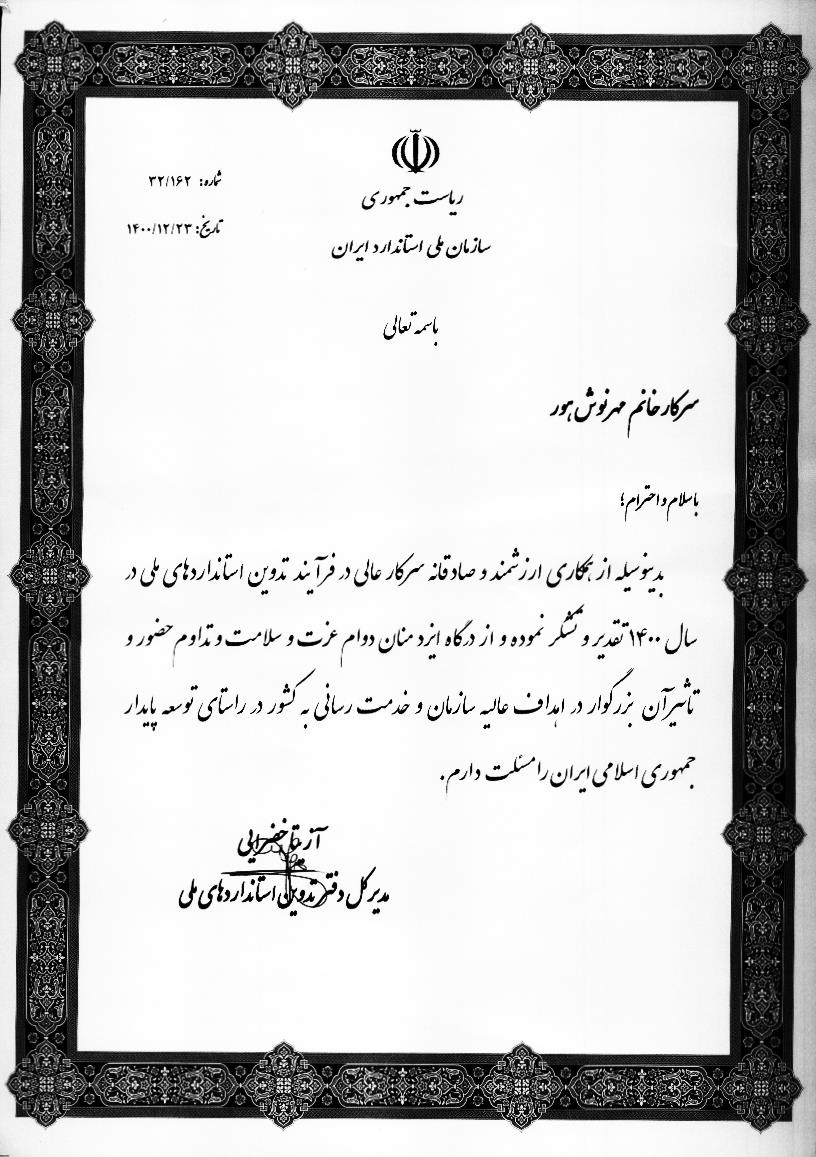 ریاست جمهوری
سازمان ملی استاندارد ایران
شماره: ۳۲/۱۶۲
تاریخ: ۱۴۰۰/۱۲/۲۳
باسمه تعالی
سرکار خانم مهرنوش هور
باسلام و احترام؛
بدینوسیله از همکاری ارزشمند و صادقانه سرکار عالی در فرآیند تدوین استانداردهای ملی در
سال ۱۴۰۰ تقدیر و تشکر نموده و از درگاه ایزد منان دوام عزت و سلامت و تداوم حضور و
تاثیر آن بزرگوار در اهداف عالیه سازمان و خدمت رسانی به کشور در راستای توسعه پایدار
جمهوری اسلامی ایران را مسئلت دارم.
آزیتا خضرایی
مدیرکل دفتر تدوین استانداردهای ملی